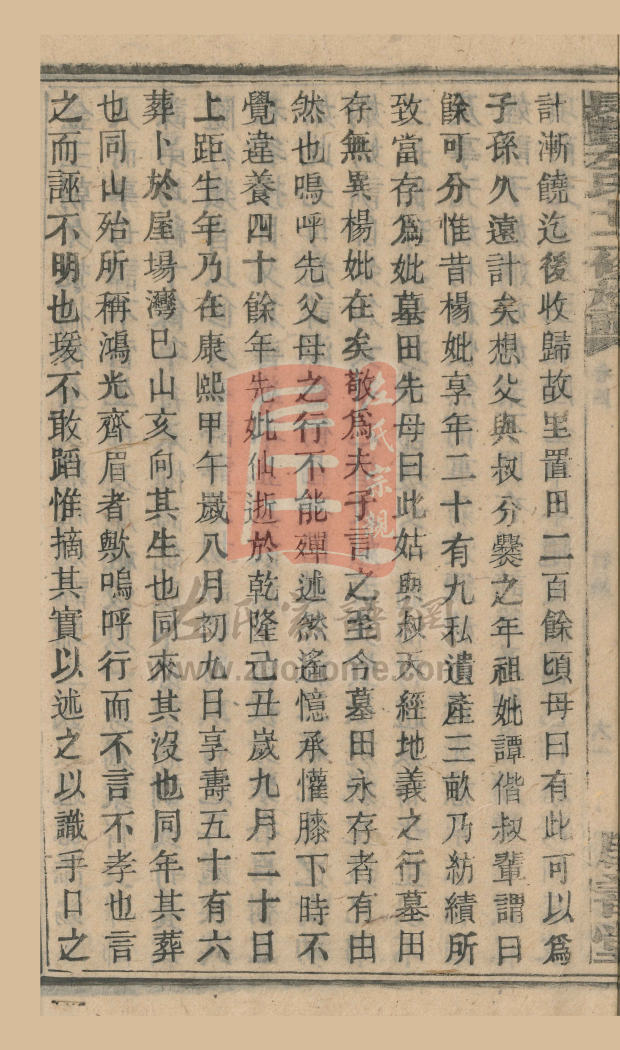 計漸饒迄後收歸故里置田二百餘頃母曰有此可以爲
子孫久遠計矣想父與叔分爨之年祖妣譚偕叔輩謂曰
餘可分惟昔楊妣享年二十有九私遺產三畝乃紡績所
致當存爲妣墓田先母曰此姑與叔天經地義之行墓田
存無異楊妣在矣敬爲夫子言之至今墓田永存者有由
然也嗚呼先父母之行不能殫述然遙憶承懽膝下時不
覺違養四十餘年先妣仙逝於乾隆己丑歲九月二十日
上距生年乃在康熙甲午歲八月初九日享壽五十有六
葬卜於屋場灣巳山亥向其生也同來其沒也同年其葬
也同山殆所稱鴻光齊眉者歟嗚呼行而不言不孝也言
之而誣不明也瑗不敢蹈惟摘其實以述之以識手口之
左氏宗親
左氏家譜網
www.zuohome.com